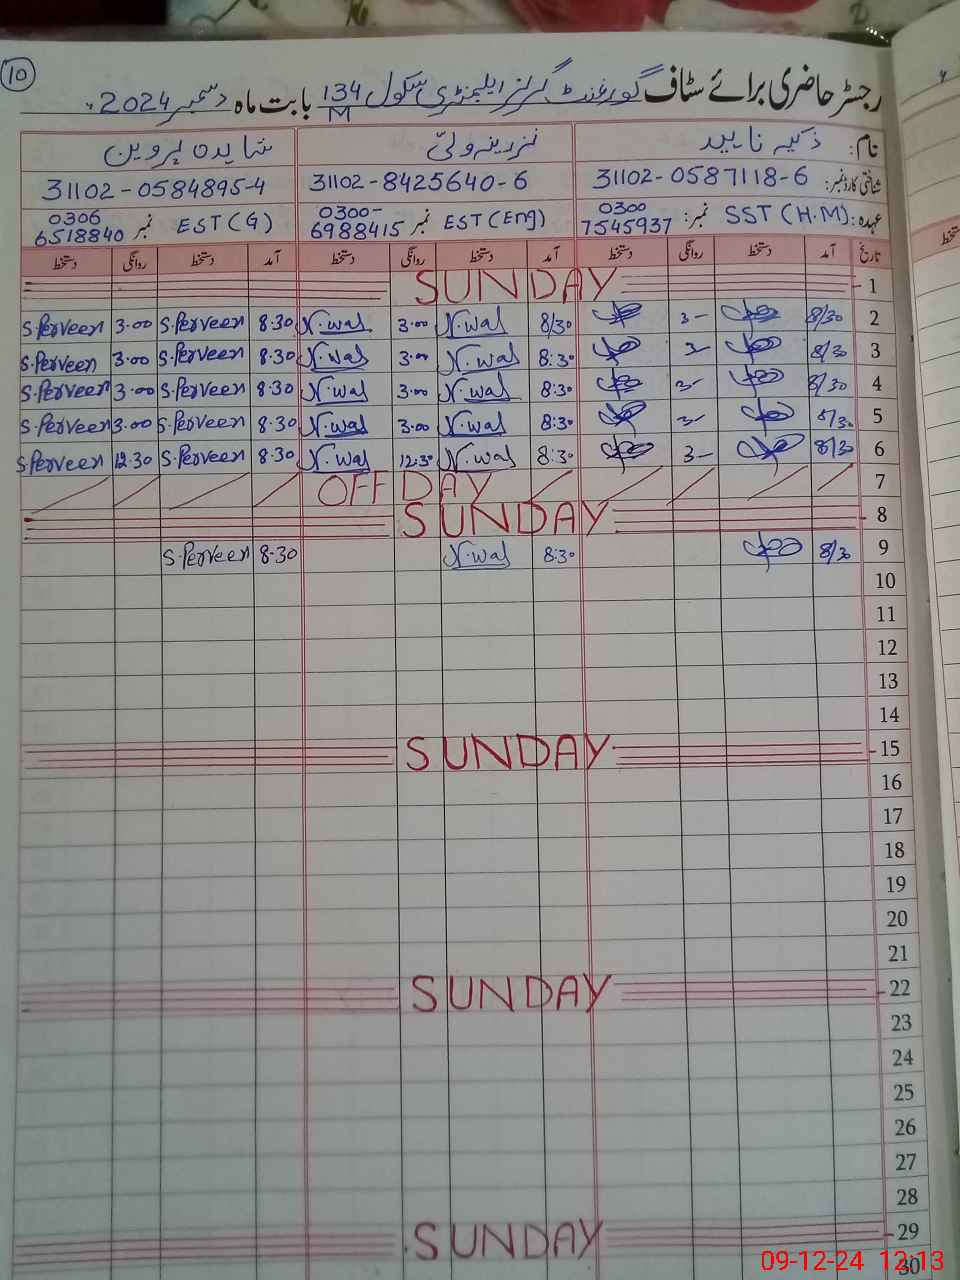 10
رجسٹر حاضری برائے سٹاف گورنمنٹ گرلز ایلیمنٹری سکول 134/M بابت ماہ دسمبر 2024ء
نام: ذکیہ ناہید نزرینہ ولی شاہدہ پروین
شناختی کارڈ نمبر: 31102-0587118-6 31102-8425640-6 31102-0584895-4
عہدہ: SST (H.M) نمبر: 0300 7545937 EST (Eng) نمبر 0300-6988415 EST (G) نمبر 0306 6518840
تاریخ آمد دستخط روانگی دستخط آمد دستخط روانگی دستخط آمد دستخط روانگی دستخط
1 SUNDAY
2 8/30 3- 8/30 N.wal 3.00 N.wal 8.30 S.Perveen 3.00 S.Perveen
3 8/30 3- 8:30 N.wal 3.00 N.wal 8.30 S.Perveen 3.00 S.Perveen
4 8/30 3- 8:30 N.wal 3.00 N.wal 8.30 S.Perveen 3.00 S.Perveen
5 8/30 3- 8:30 N.wal 3.00 N.wal 8.30 S.Perveen 3.00 S.Perveen
6 8/30 3- 8:30 N.wal 12:30 N.wal 8.30 S.Perveen 12.30 S.Perveen
7 OFF DAY
8 SUNDAY
9 8/30 8:30 N.wal 8.30 S.Perveen
10
11
12
13
14
15 SUNDAY
16
17
18
19
20
21
22 SUNDAY
23
24
25
26
27
28
29 SUNDAY
30
09-12-24 12:13